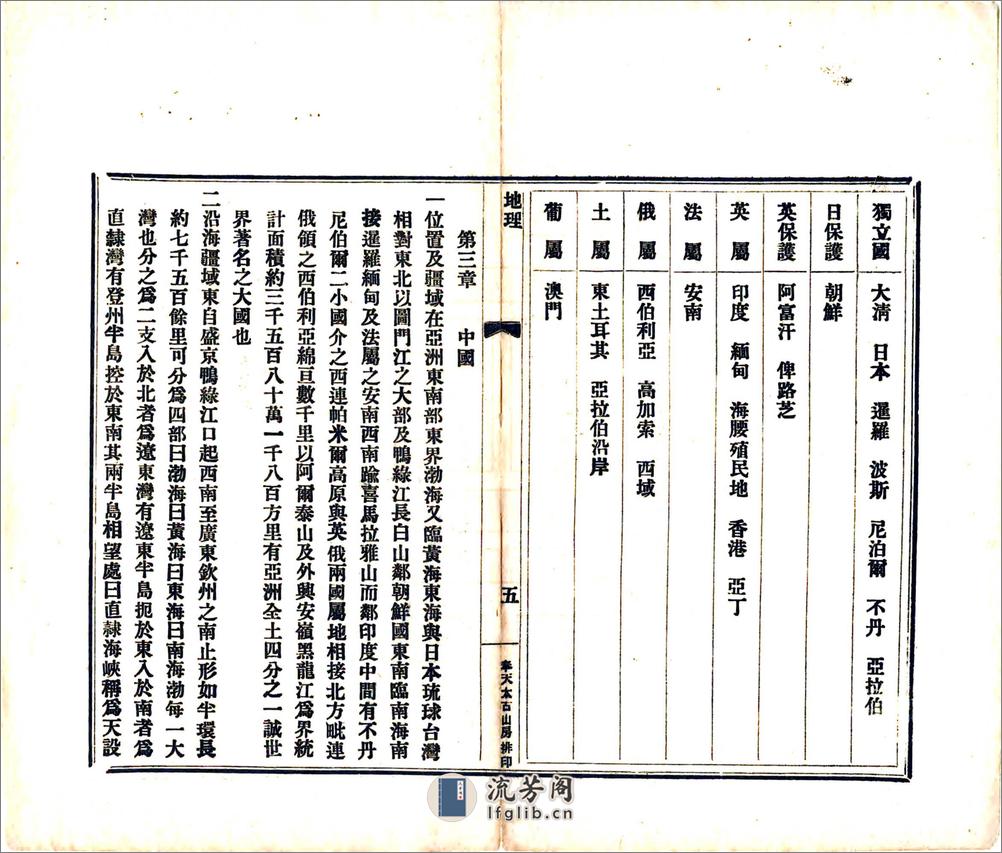 獨立國 大清 日本 暹羅 波斯 尼泊爾 不丹 亞拉伯
日保護 朝鮮
英保護 阿富汗 俾路芝
英屬 印度 緬甸 海腰殖民地 香港 亞丁
法屬 安南
俄屬 西伯利亞 高加索 西域
土屬 東土耳其 亞拉伯沿岸
葡屬 澳門
地理 五 奉天太古山房排印
第三章 中國
一位置及疆域在亞洲東南部東界渤海又臨黃海東海與日本琉球台灣
相對東北以圖門江之大部及鴨綠江長白山鄰朝鮮國東南臨南海南
接暹羅緬甸及法屬之安南西南踰喜馬拉雅山而鄰印度中間有不丹
尼伯爾二小國介之西連帕米爾高原與英俄兩國屬地相接北方毗連
俄領之西伯利亞綿亘數千里以阿爾泰山及外興安嶺黑龍江爲界統
計面積約三千五百八十萬一千八百方里有亞洲全土四分之一誠世
界著名之大國也
二沿海疆域東自盛京鴨綠江口起西南至廣東欽州之南止形如半環長
約七千五百餘里可分爲四部曰渤海曰黃海曰東海曰南海渤每一大
灣也分之爲二支入於北者爲遼東灣有遼東半島扼於東入於南者爲
直隸灣有登州半島控於東南其兩半島相望處曰直隸海峽稱爲天設
流芳阁
lfglib.cn